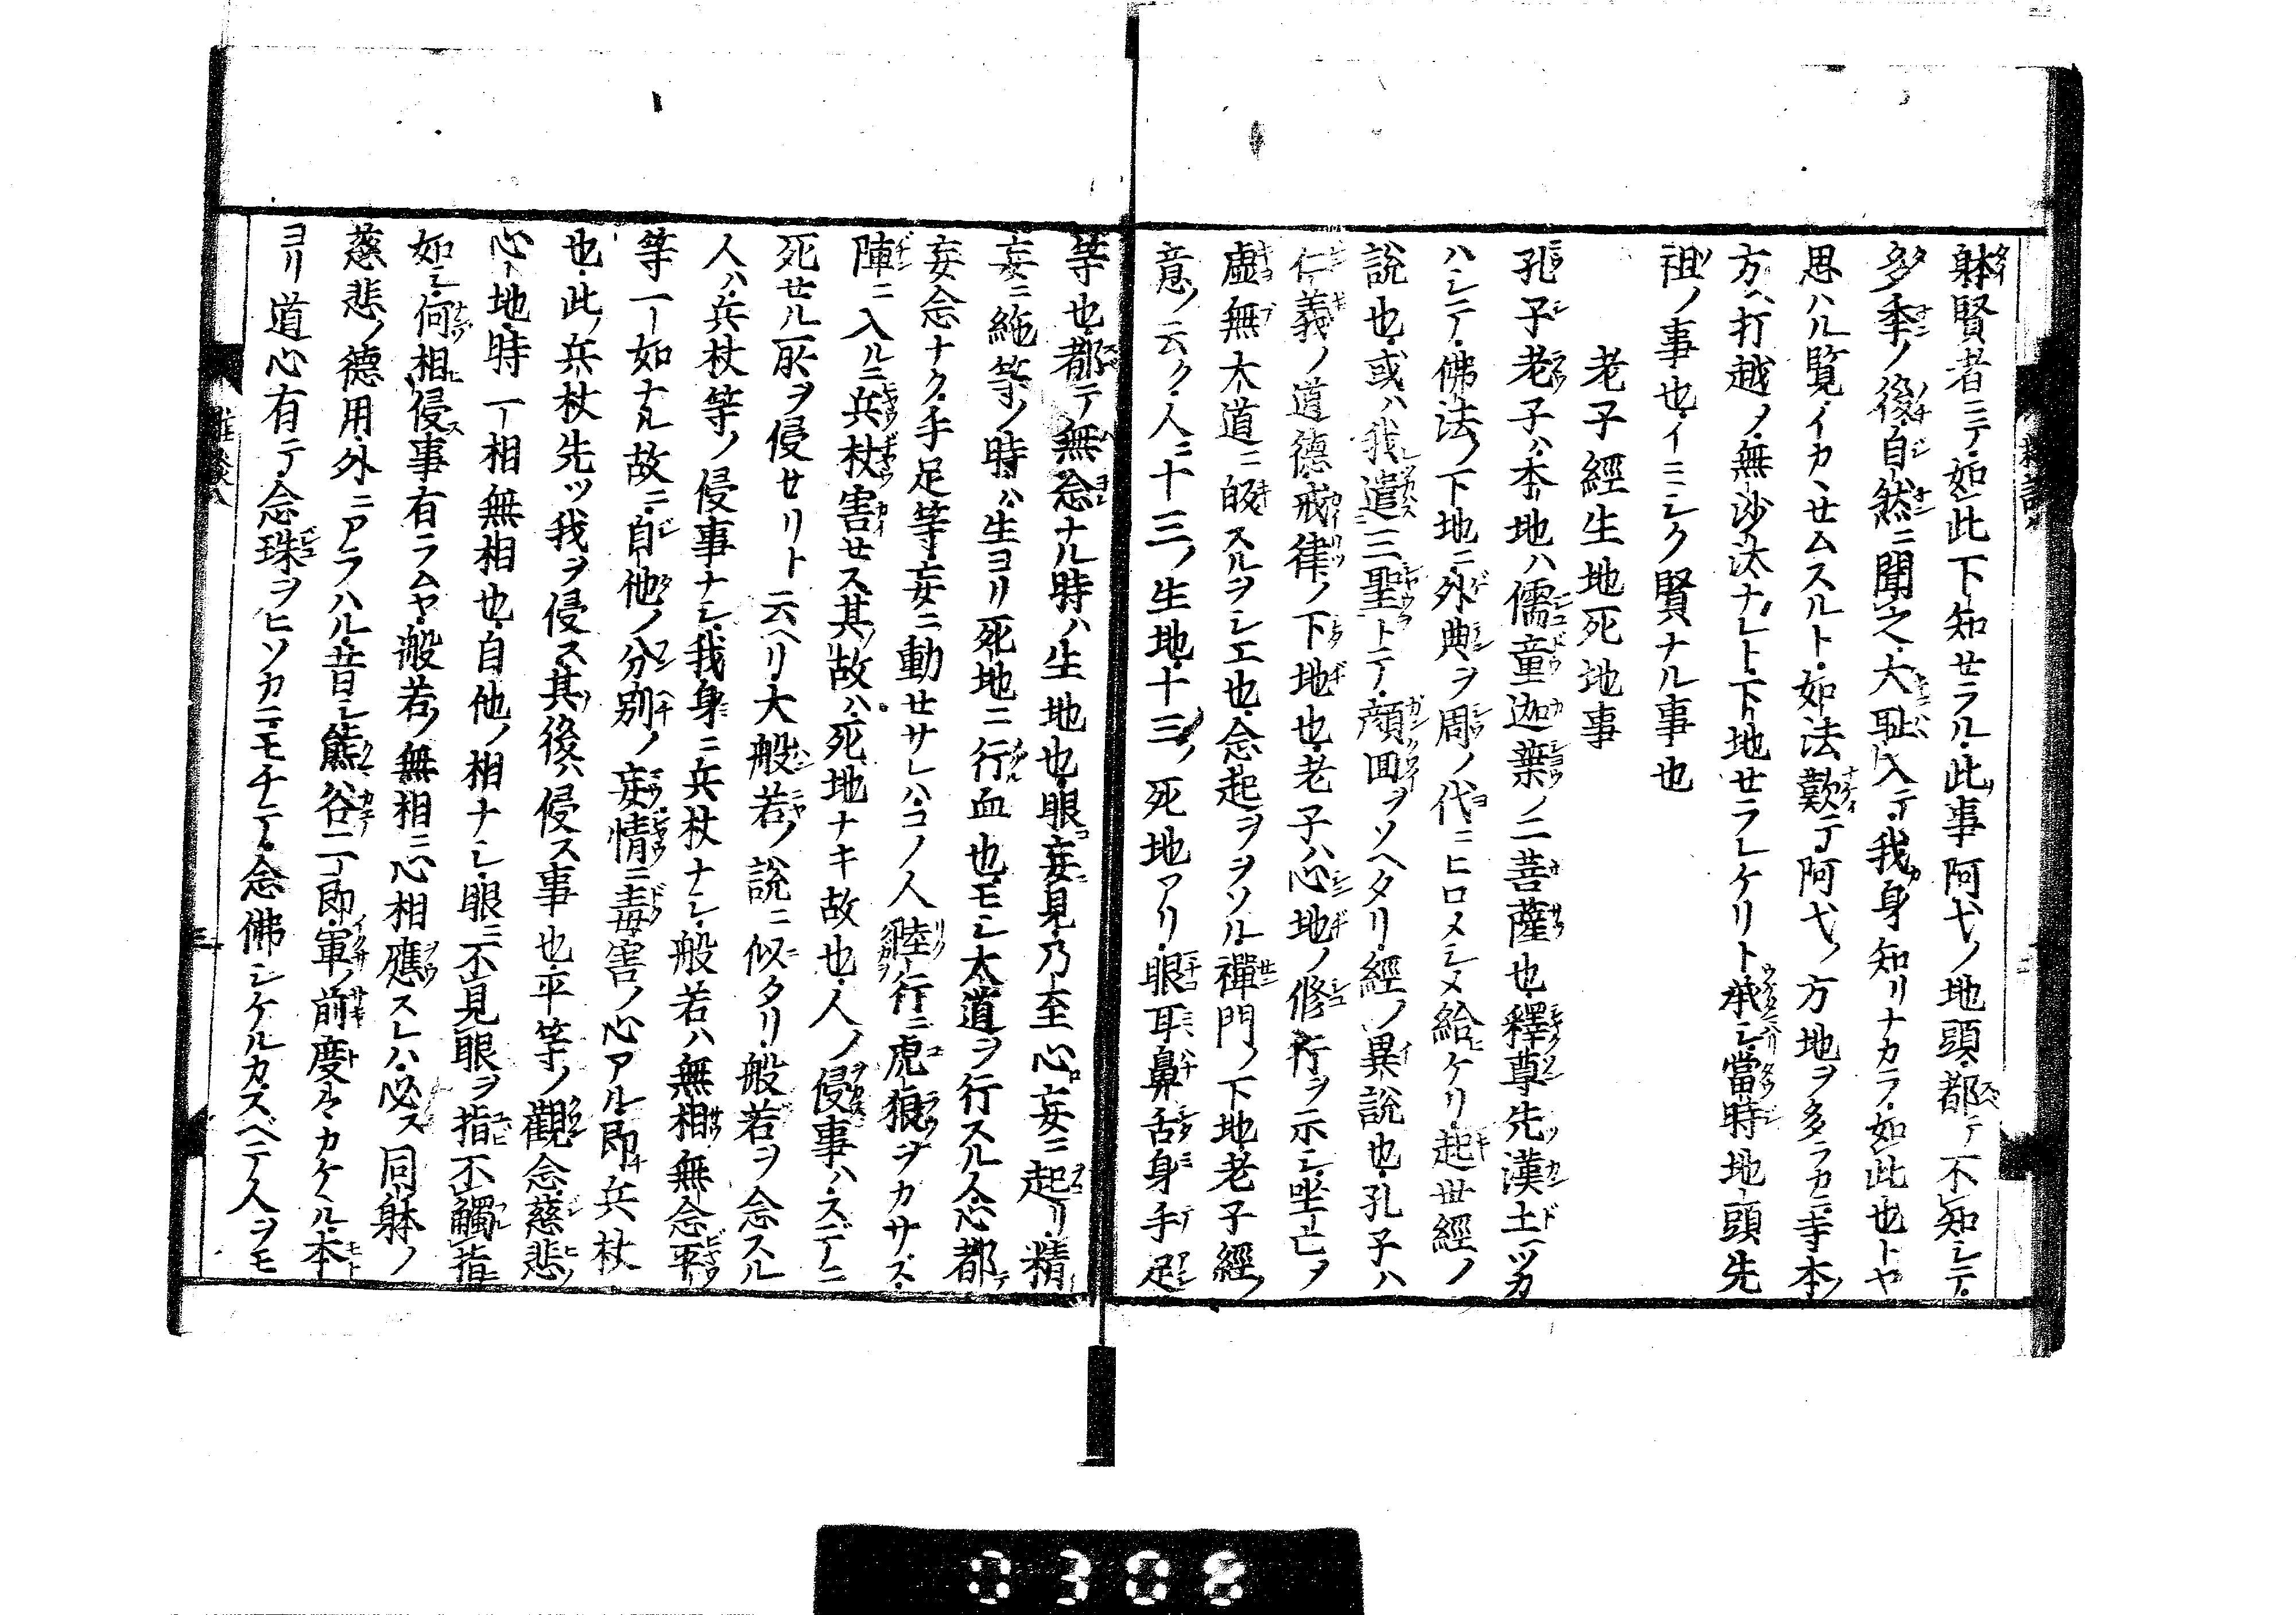 躰賢者ニテ・如此下知セラル・此事阿弋ノ地頭・都テ不知シテ・
多季ノ後・自然ニ聞之・大耻入テ・我身知リナカラ・如此也トヤ
思ハル覧・イカヽセムスルト・如法歎テ阿弋ノ方地ヲ多ラカニ寺本ノ
方ヘ打越ノ・無沙汰ナレト・下地セラレケリト承シ・當時地頭先
祖ノ事也・イミシク賢ナル事也
老子經生地死地事
孔子老子ハ本地ハ儒童迦葉ノ二菩薩也・釋尊先漢土ニツカ
ハシテ・佛法ノ下地ニ・外典ヲ周ノ代ニヒロメシメ給ケリ・起世經ノ
說也・或ハ我遣三聖トテ・顔回ヲソヘタリ・經ノ異說也・孔子ハ
仁義ノ道德・戒律ノ下地也・老子ハ心地ノ修行ヲ示シ・坐亡ノ
虛無大道ニ皈スルヲシエ也・念起ヲヲソル・禪門ノ下地・老子經ノ
意ノ云ク・人ニ十三ノ生地・十三ノ死地アリ・眼耳鼻舌身手足
等也・都テ無念ナル時ハ生地也・眼妄見・乃至心妄ニ起リ・精
妄ニ絁等ノ時ハ・生ヨリ死地ニ行血也・モシ太道ヲ行スル人・心都テ
妄念ナク・手足等・妄ニ動セサレハ・コノ人陸行ニ虎狼ヲカサス・
陣ニ入ルニ兵杖害セス其故ハ・死地ナキ故也・人ノ侵事ハ・スデニ
死セル所ヲ侵セリト云ヘリ・大般若ノ說ニ似タリ・般若ヲ念スル
人ハ・兵杖等ノ侵事ナシ・我身ニ兵杖ナシ・般若ハ無相無念平
等一如ナル故ニ・自他ノ分別ノ妄情ニ毒害ノ心アル・即兵杖
也・此ノ兵杖先ツ我ヲ侵ス其後ハ侵ス事也・平等ノ觀念慈悲ノ
心地時一相無相也・自他ノ相ナシ・眼ニ不見眼ヲ・指不觸指
如シ・何相侵事有ラムヤ・般若ノ無相ニ心相應スレハ・必ス同躰ノ
慈悲ノ德用・外ニアラハル・昔シ熊谷二郎・軍ノ前度々カケヽル・本
ヨリ道心有テ・念珠ヲヒソカニモチテ・念佛シケルカ・スベテ人ヲモ
三
0308